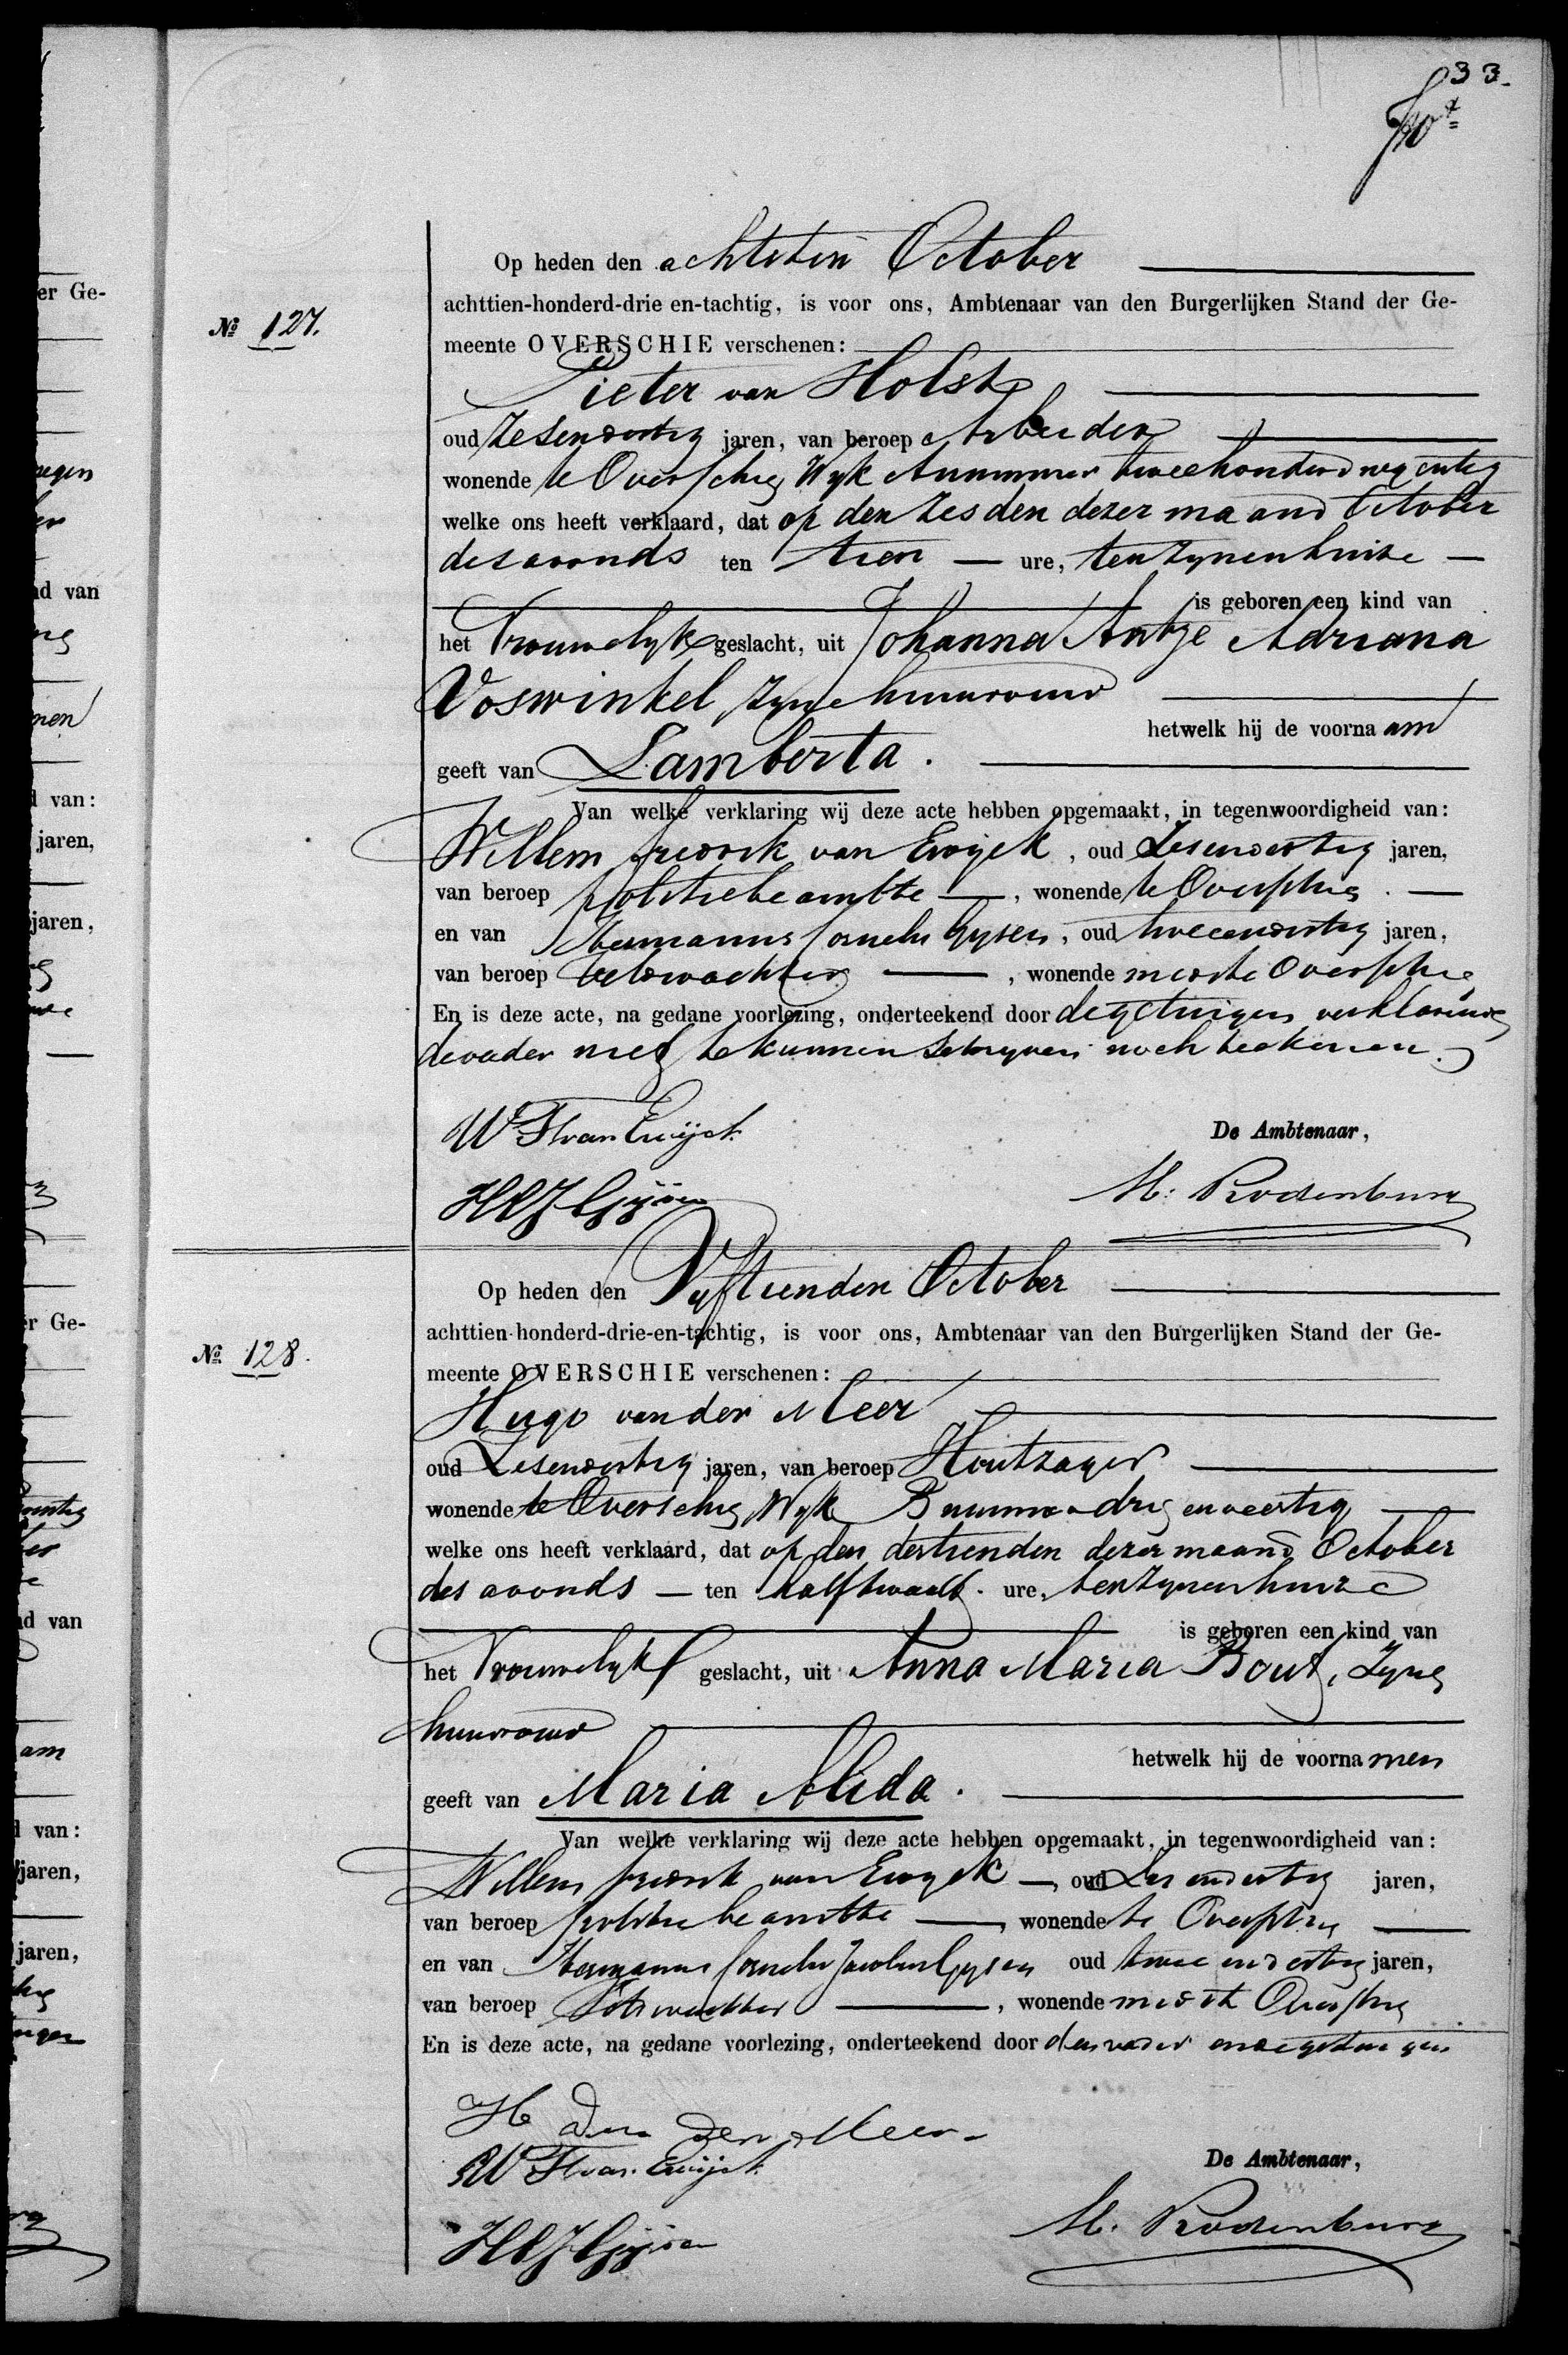 33.
Op heden den achtsten October
achttien-honderd-drie en-tachtig, is voor ons, Ambtenaar van den Burgerlijken Stand der Ge-
№ 127.
meente OVERSCHIE verschenen:
Pieter van Holst
oud zesendertig jaren, van beroep Arbeider
wonende te Overschie Wyk A nummer tweehonderd negentig
welke ons heeft verklaard, dat op den zesden dezer maand October
des avonds ten tien ure, ten zynen huize
is geboren een kind van
het Vrouwelyk geslacht, uit Johanna Antje Adriana
Voswinkel zyne huisvrouw
hetwelk hij de voornaam
geeft van Lamberta.
Van welke verklaring wij deze acte hebben opgemaakt, in tegenwoordigheid van:
Willem Fredrik van Ewijck, oud Zesendertig jaren,
van beroep politiebeambte, wonende te Overschie.
en van Hermanus Cornelis Gijsen, oud tweeendertig jaren,
van beroep Veldwachter, wonende mede te Overschie
En is deze acte, na gedane voorlezing, onderteekend door de getuigen verklarende
de vader niet te kunnen schryven noch teekenen.
W F van Ewijck
De Ambtenaar,
HCJ Gijsen
M. Rodenburg
Op heden den Vyftienden October
achttien-honderd-drie-en-tachtig, is voor ons, Ambtenaar van den Burgerlijken Stand der Ge-
№ 128.
meente OVERSCHIE verschenen:
Hugo van der Meer
oud Zesendertig jaren, van beroep Houtzager
wonende te Overschie, Wyk B nummer drie en veertig
welke ons heeft verklaard, dat op den dertienden dezer maand October
des avonds ten half twaalf ure, ten zynen huize
is geboren een kind van
het Vrouwelyk geslacht, uit Anna Maria Bout, Zyne
huisvrouw
hetwelk hij de voornamen
geeft van Maria Alida.
Van welke verklaring wij deze acte hebben opgemaakt, in tegenwoordigheid van:
Willem Fredrik van Ewyck, oud Zes en dertig jaren,
van beroep politie beambte, wonende te Overschie
en van Hermanus Cornelis Jacobus Gysen oud twee en dertig jaren,
van beroep Veldwachter, wonende mede te Overschie
En is deze acte, na gedane voorlezing, onderteekend door den vader en de getuigen
H van der Meer
W F van Ewijck
De Ambtenaar,
HCJ Gijsen
M. Rodenburg